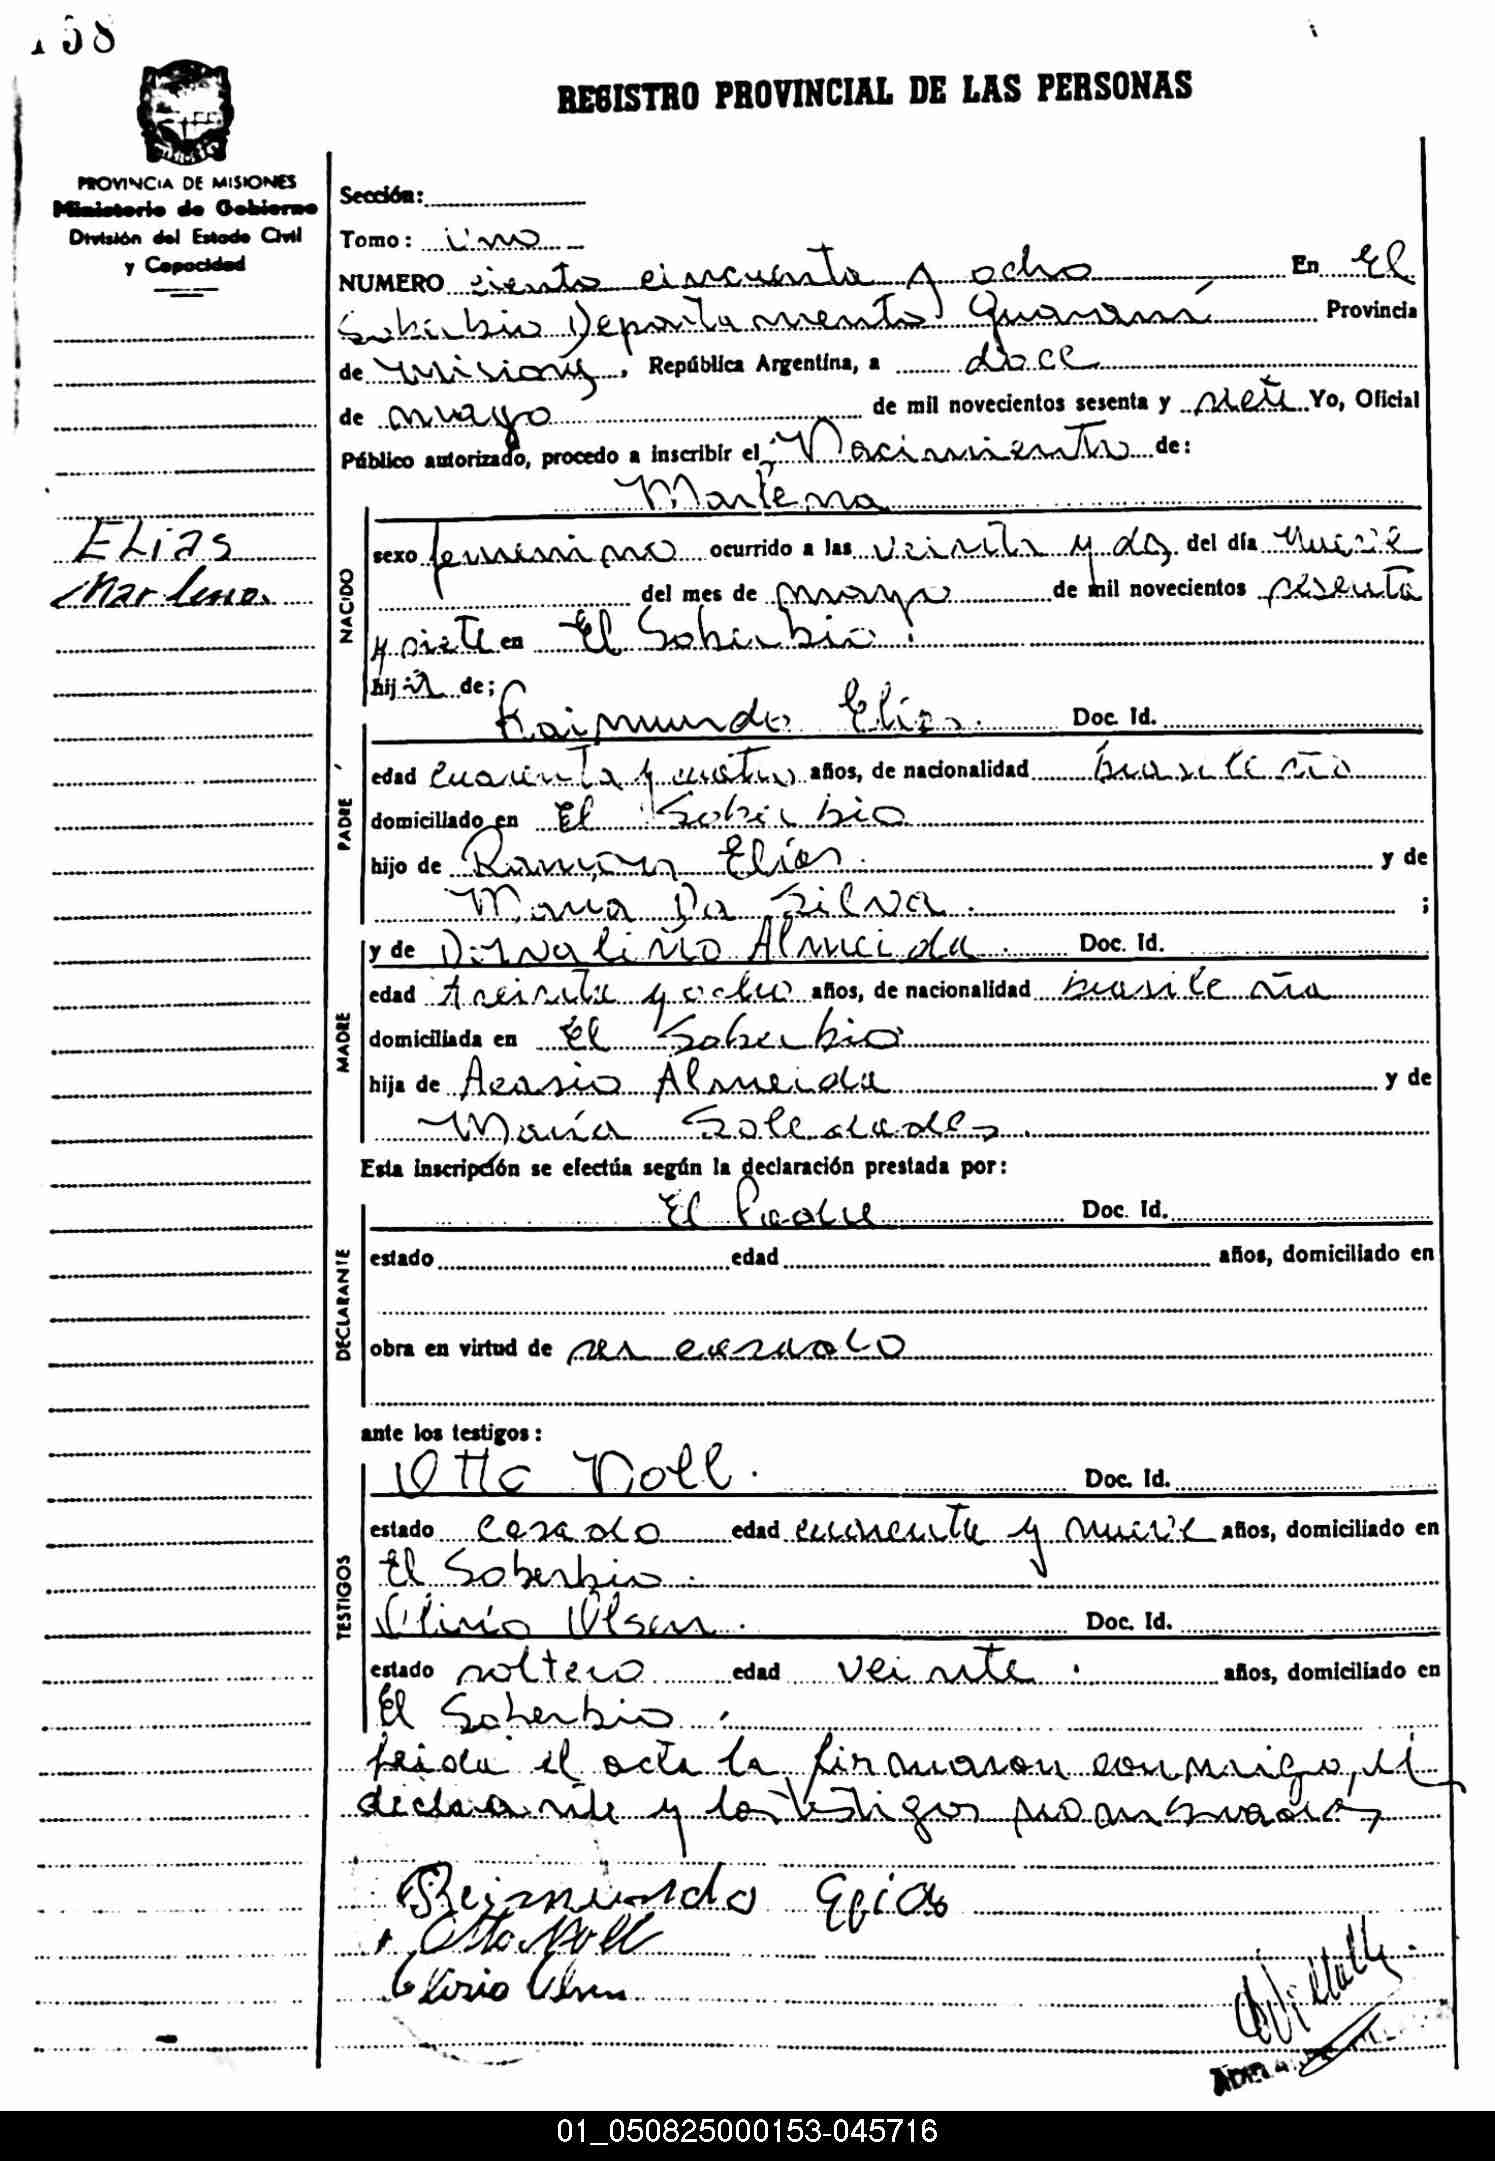 158
REGISTRO PROVINCIAL DE LAS PERSONAS
PROVINCIA DE MISIONES
Ministerio de Gobierno
División del Estado Civil
y Capacidad
Elias
Marlena.
Sección:
Tomo: Uno
NUMERO ciento cincuenta y ocho En El
Soberbio Departamento Guaraní Provincia
de Misiones, República Argentina, a doce
de mayo de mil novecientos sesenta y siete Yo, Oficial
Público autorizado, procedo a inscribir el Nacimiento de:
Marlena
NACIDO
sexo femenino ocurrido a las veinte y dos del día nueve
del mes de mayo de mil novecientos sesenta
y siete en El Soberbio.
hija de;
Raimundo Elías. Doc. Id.
PADRE
edad cuarenta y cuatro años, de nacionalidad brasileña
domiciliado en El Soberbio
hijo de Ramón Elías. y de
Maria Da Silva. ;
y de Dorvaliño Almeida. Doc. Id.
MADRE
edad treinta y ocho años, de nacionalidad brasileña
domiciliada en El Soberbio
hija de Acasio Almeida y de
María Soledades.
Esta inscripción se efectúa según la declaración prestada por:
El Padre Doc. Id.
DECLARANTE
estado edad años, domiciliado en
obra en virtud de ser casado
ante los testigos:
Otto Noll. Doc. Id.
TESTIGOS
estado casado edad cuarenta y nueve años, domiciliado en
El Soberbio.
Olirio Olsen. Doc. Id.
estado soltero edad veinte. años, domiciliado en
El Soberbio.
leida el acta la firmaron conmigo, el
declarante y los testigos
Reimundo Elias
Otto Noll
Olirio Olsen
01_050825000153-045716